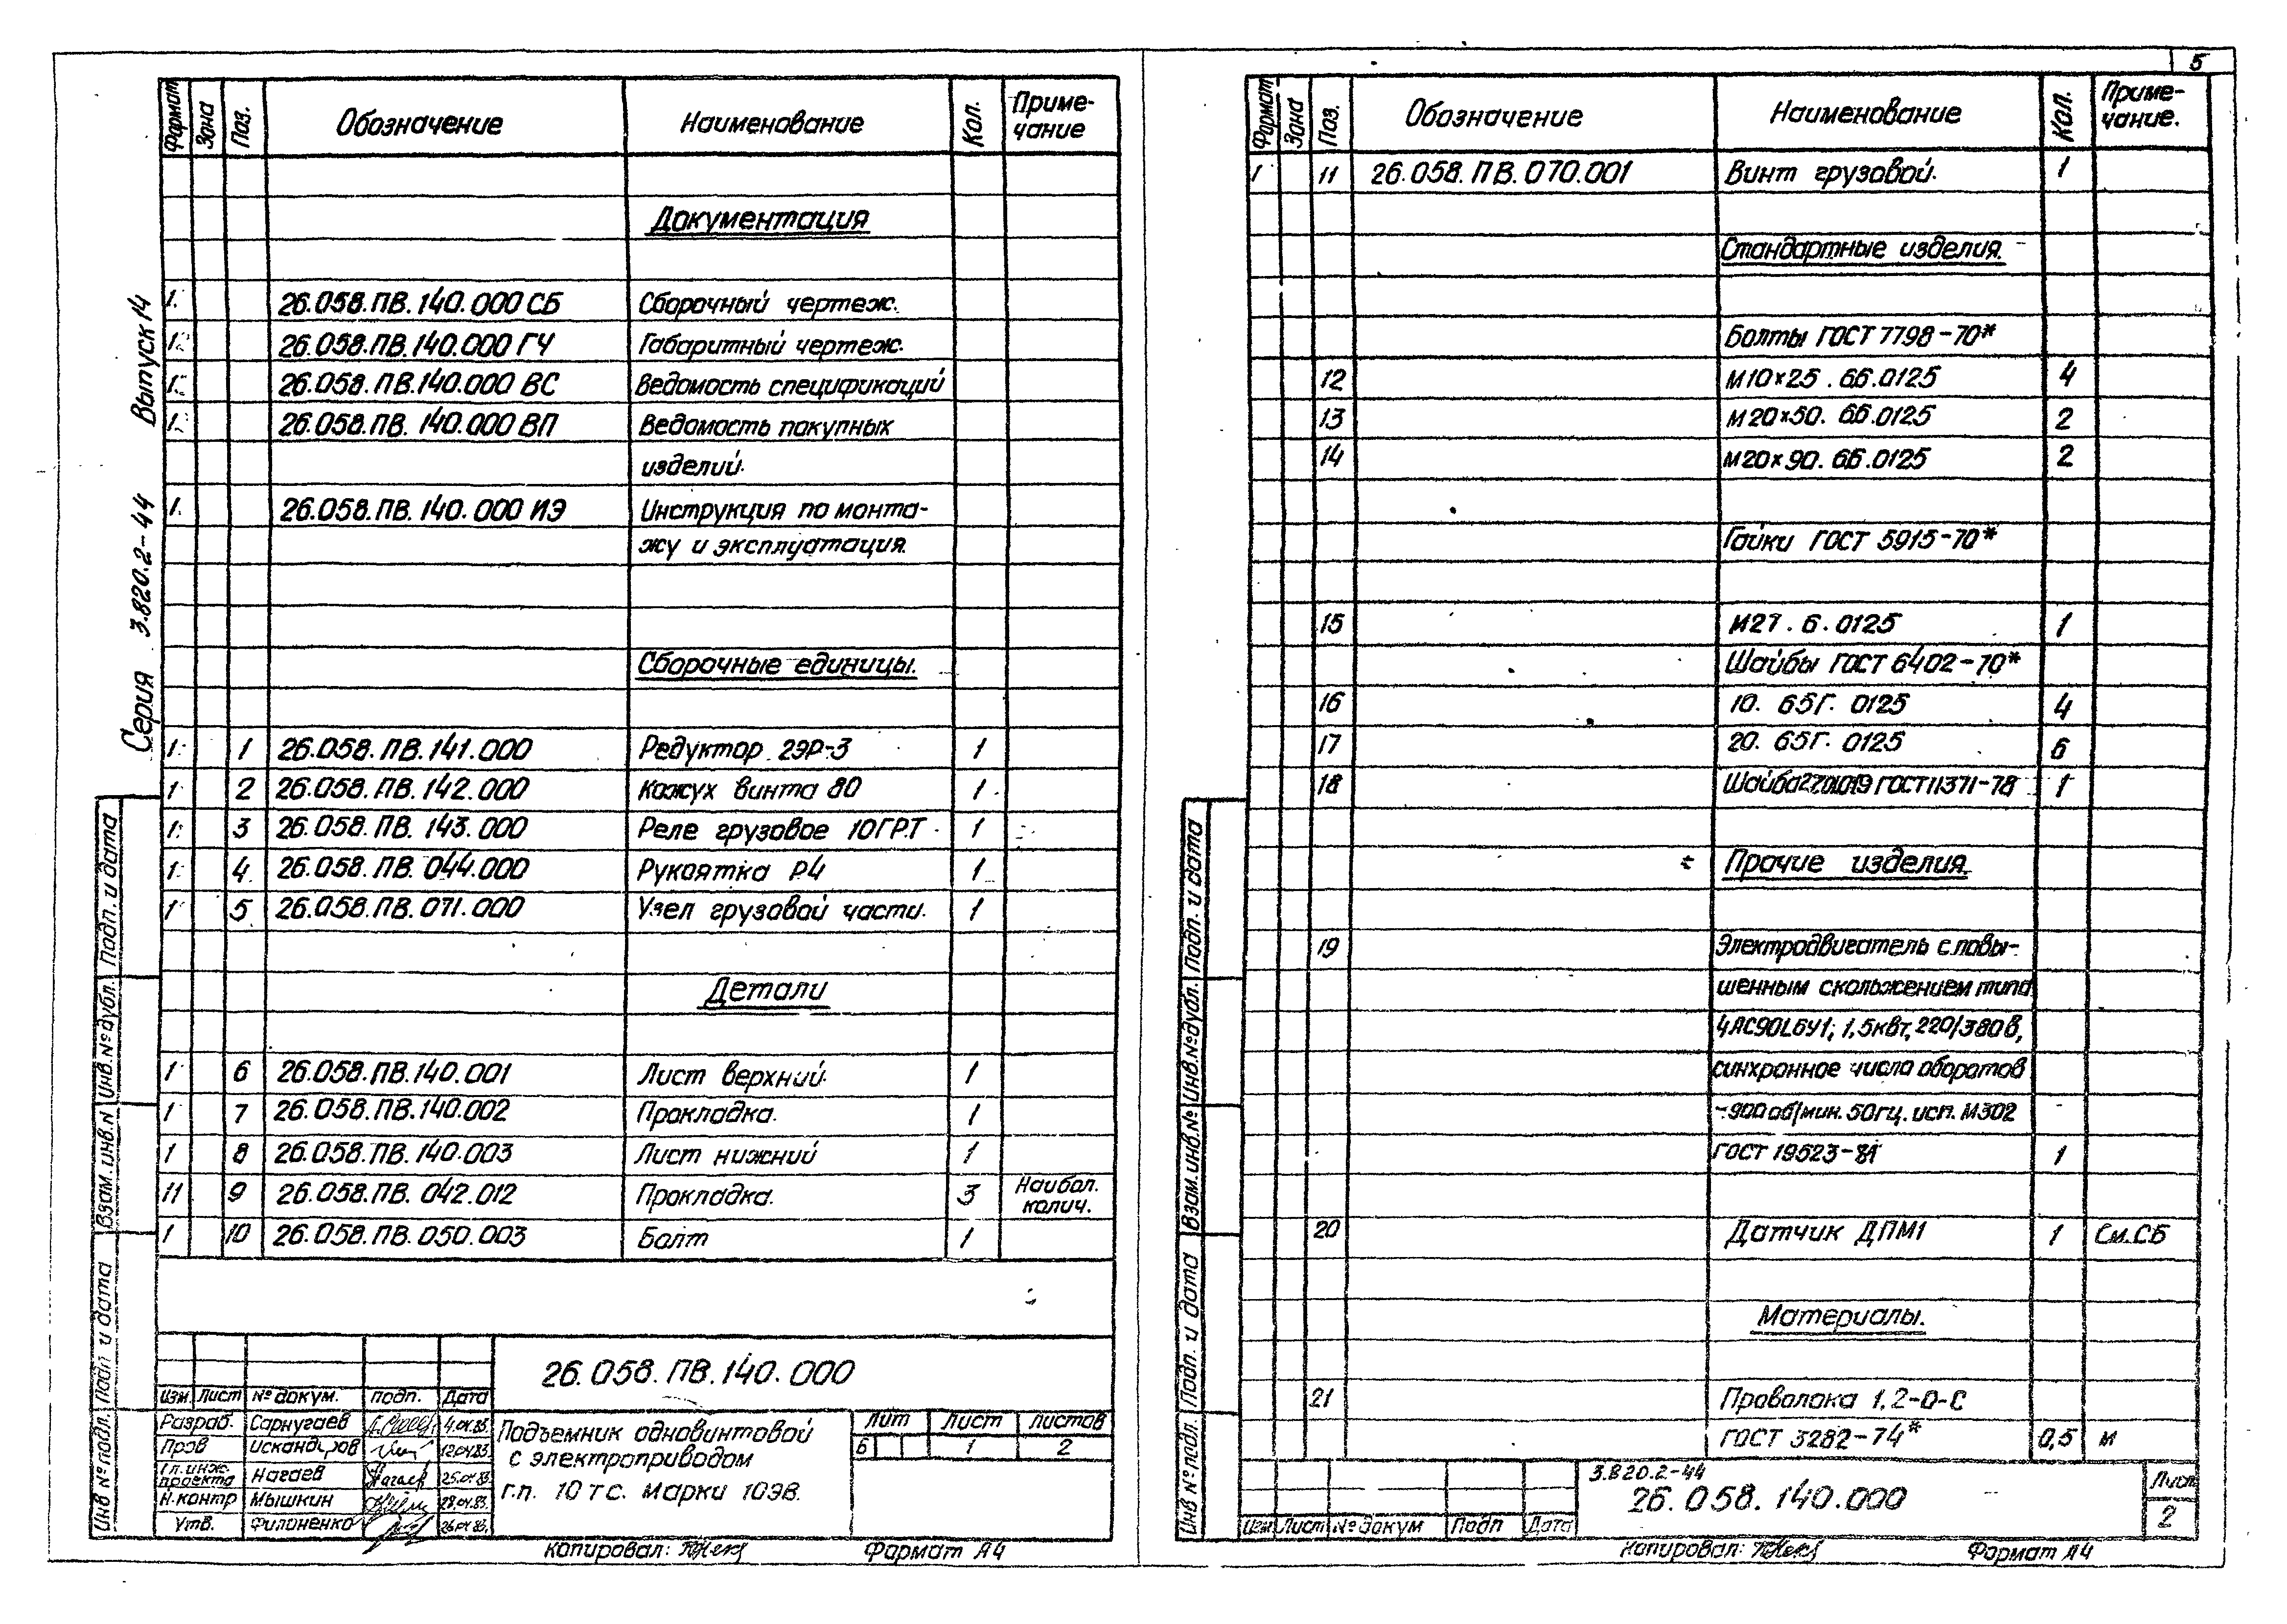 5
Серия 3.820.2-44 Выпуск 14
Формат Зона Поз. Обозначение Наименование Кол. Приме-
чание
Документация
26.058.ПВ.140.000 СБ Сборочный чертеж.
26.058.ПВ.140.000 ГЧ Габаритный чертеж.
26.058.ПВ.140.000 ВС Ведомость спецификаций
26.058.ПВ.140.000 ВП Ведомость покупных
изделий.
26.058.ПВ.140.000 ИЭ Инструкция по монта-
жу и эксплуатация.
Сборочные единицы.
1 26.058.ПВ.141.000 Редуктор 2ЭР-3 1
2 26.058.ПВ.142.000 Кожух винта 80 1
3 26.058.ПВ.143.000 Реле грузовое 10ГРТ 1
4 26.058.ПВ.044.000 Рукоятка Р4 1
5 26.058.ПВ.071.000 Узел грузовой части. 1
Детали
1 6 26.058.ПВ.140.001 Лист верхний. 1
1 7 26.058.ПВ.140.002 Прокладка. 1
1 8 26.058.ПВ.140.003 Лист нижний 1
11 9 26.058.ПВ.042.012 Прокладка. 3 Наибол.
колич.
1 10 26.058.ПВ.050.003 Болт 1
Подп. и дата
Инв.№дубл.
Взам.инв.№
Подп и дата
Инв №подл.
26.058.ПВ.140.000
Изм Лист № докум. подп. Дата
Разраб. Сарнугаев 4.04.83.
Пров Искандиров 12.04.83
Гл.инж.
проекта Нагаев 25.04.83
Н.контр Мышкин 28.04.83.
Утв. Филоненко 26.04.83.
Подъемник одновинтовой
с электроприводом
г.п. 10 тс. марки 10ЭВ.
Лит Лист Листов
Б 1 2
Копировал: Формат А4
Формат Зона Поз. Обозначение Наименование Кол. Приме-
чание.
1 11 26.058.ПВ.070.001 Винт грузовой. 1
Стандартные изделия.
Болты ГОСТ 7798-70*
12 М10×25.66.0125 4
13 М20×50.66.0125 2
14 М20×90.66.0125 2
Гайки ГОСТ 5915-70*
15 М27.6.0125 1
Шайбы ГОСТ 6402-70*
16 10. 65Г. 0125 4
17 20. 65Г. 0125 6
18 Шайба27.01.019 ГОСТ11371-78 1
Прочие изделия.
19 Электродвигатель с повы-
шенным скольжением типа
4АС90L6У1; 1,5квт, 220/380в,
синхронное числа оборотов
-900 об/мин. 50гц. исп. М302
ГОСТ 19523-81 1
20 Датчик ДПМ1 1 См.СБ
Материалы.
21 Проволока 1,2-О-С
ГОСТ 3282-74* 0,5 м
Подп. и дата
Инв.№дубл.
Взам.инв.№
Подп. и дата
Инв №подл.
3.820.2-44
26.058.140.000
Изм Лист № докум Подп Дата
Лист
2
Копировал: Формат А4